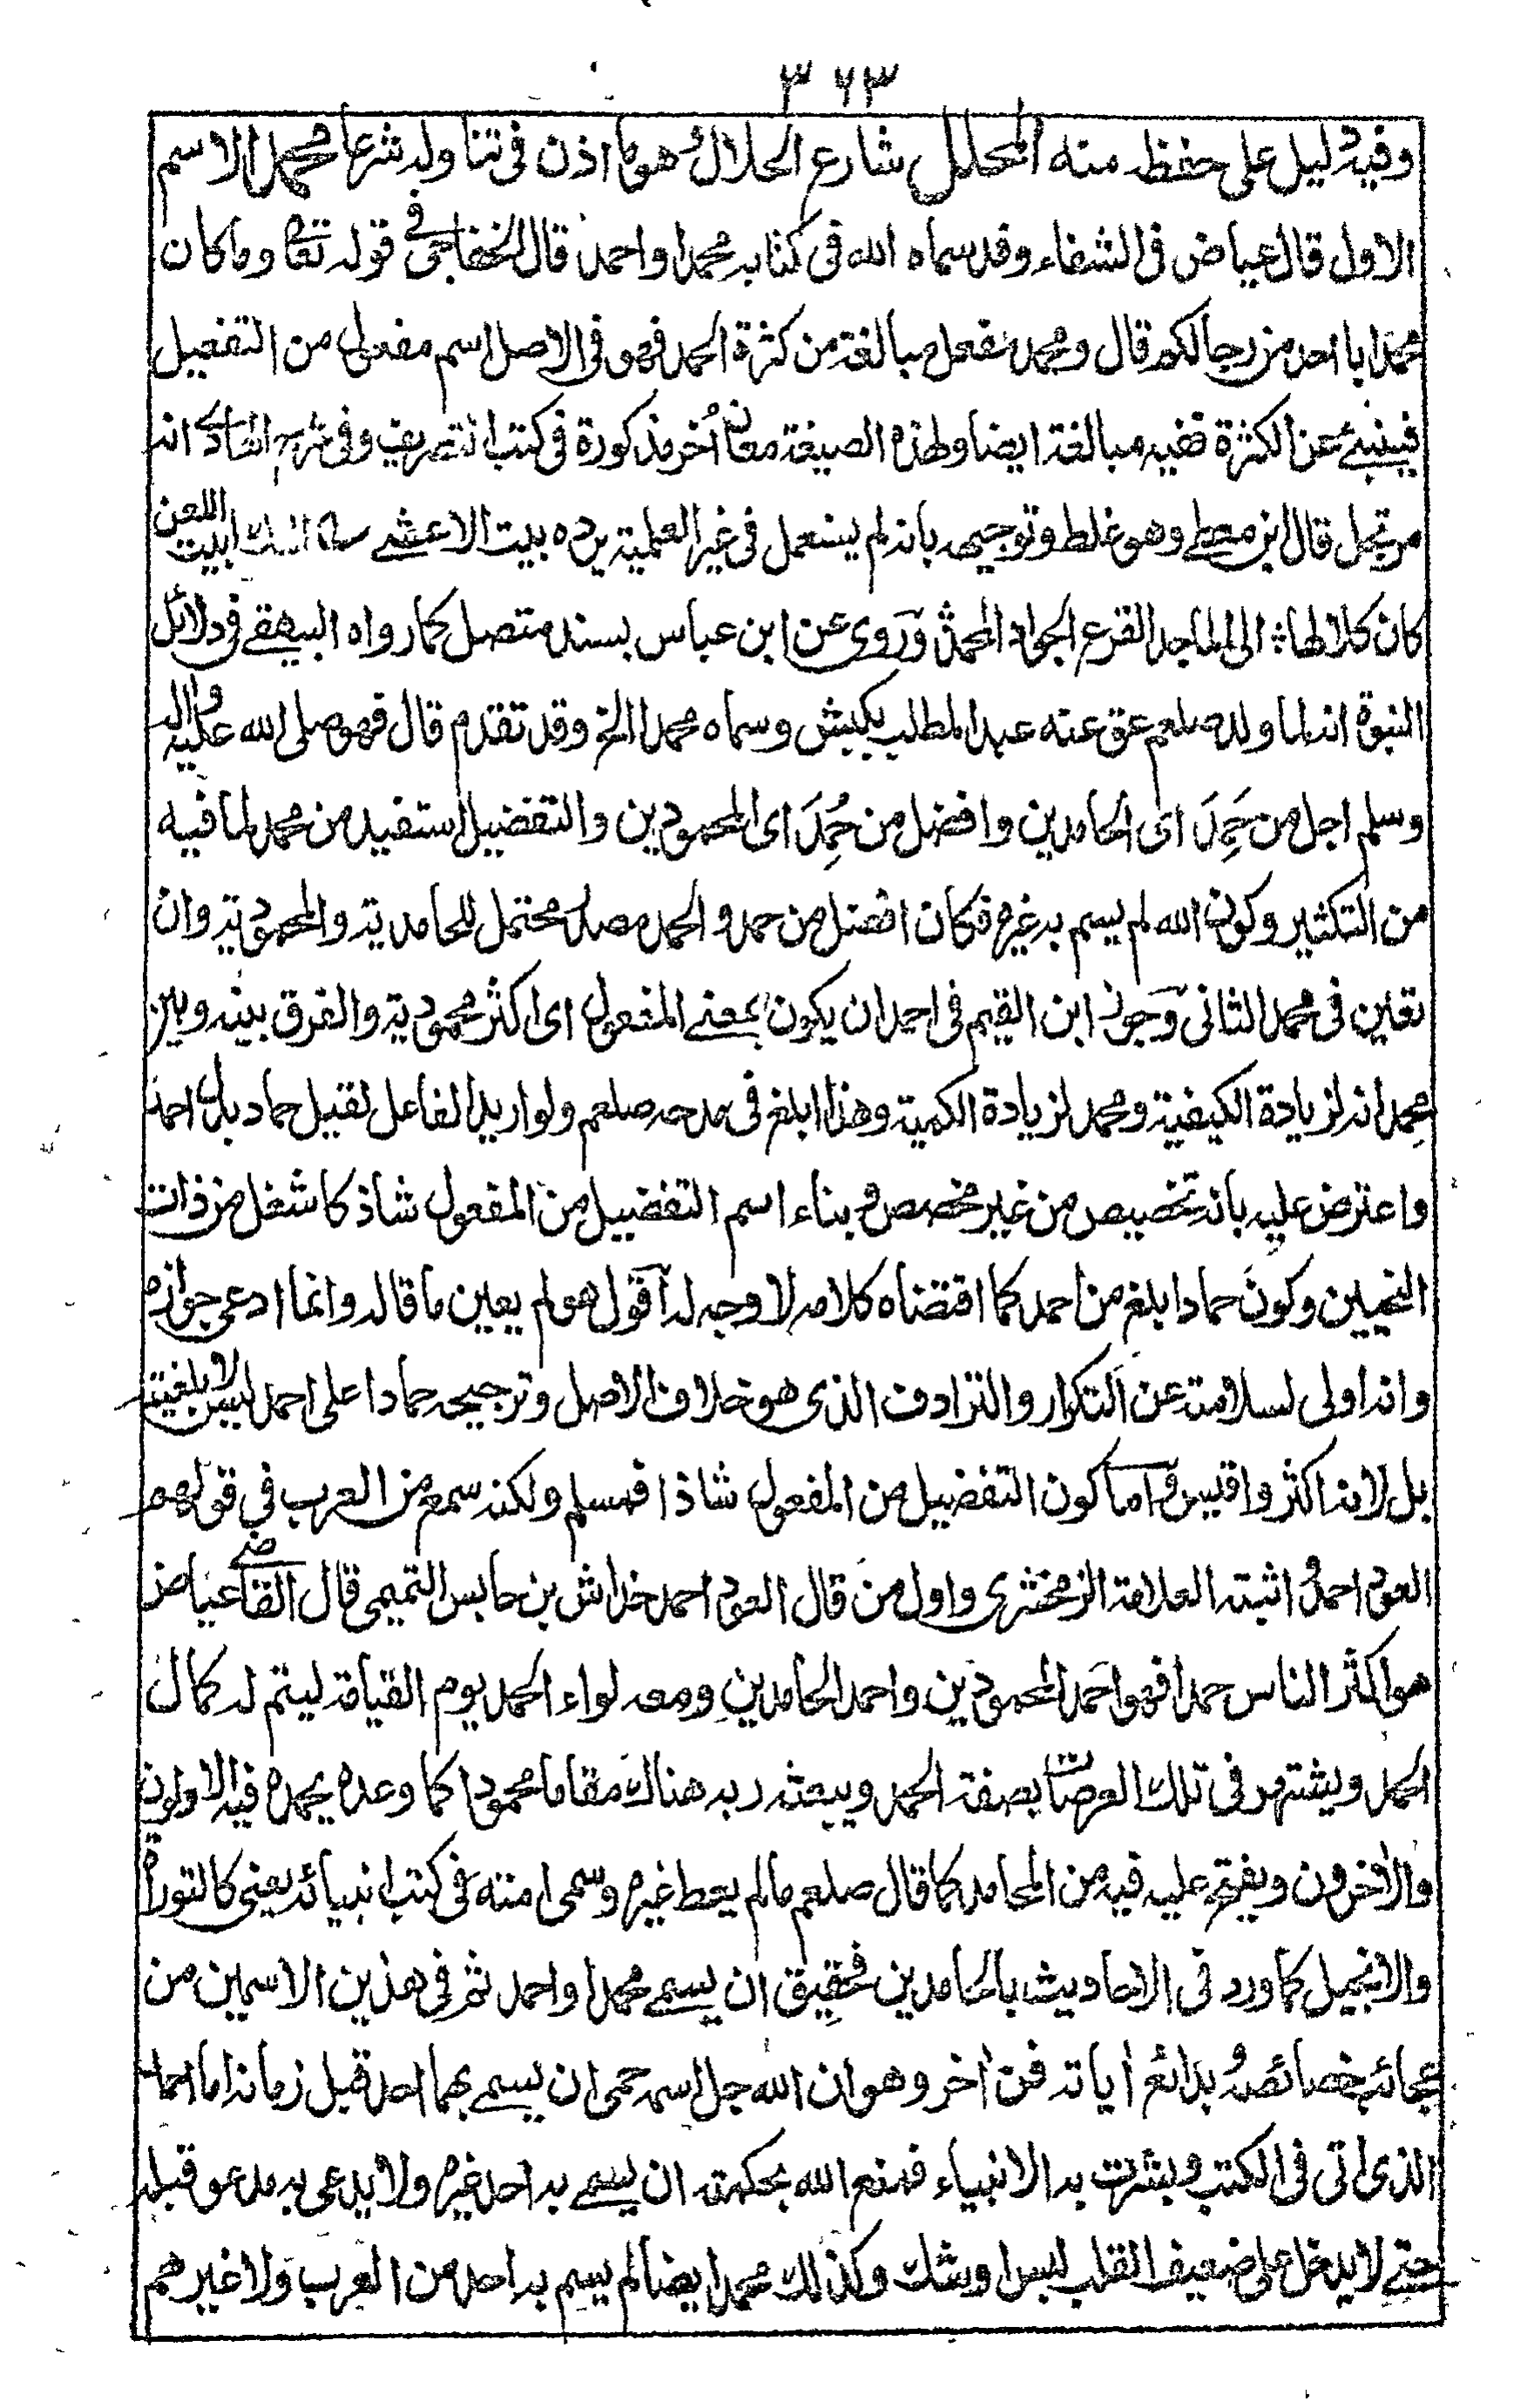 ٣٦٣
وفيه دليل على حفظه منه المحلل شارع الحلال وهو ما اذن في تناوله شرعا محمد الاسم
الاول قال عياض في الشفاء وقد سماه الله في كتابه محمدا واحمد قال الخفاجي في قوله تعا وما كان
محمد ابا احد من رجالكم قال ومحمد مفعل مبالغة من كثرة الحمد فهو في الاصل اسم مفعول من التفعيل
فينبئ عن الكثرة ففيه مبالغة ايضا ولهذه الصيغة معان أخر مذكورة في كتب التصريف وفي شرح انه
مرتجل قال ابن معطے وهو غلط وتوجيهه بانه لم يستعمل في غير العلمية يرده بيت الاعشے ابيت اللعن
كان كلالها ؞ الى الماجد القرع الجواد المحمد وروى عن ابن عباس بسند متصل كما رواه البيهقے في دلائل
النبوة انه لما ولد صلعم عق عنه عبد المطلب بكبش وسماه محمدا الخ وقد تقدم قال فهو صلى الله عليه واله
وسلم اجل من حَمِدَ اى الحامدين وافضل من حُمِدَ اى المحمودين والتفضيل استفيد من محمد لما فيه
من التكثير وكون الله لم يسم به غيره فكان افضل من حمد والحمد مصدر محتمل للحامدية والمحمودية وان
تعين في محمد الثانى وجوز ابن القيم في احمد ان يكون بمعنے المفعول اى اكثر محمودية والفرق بينه وبين
محمد انه لزيادة الكيفية ومحمد لزيادة الكمية وهذا ابلغ في مدحه صلعم ولو اريد الفاعل لقيل حماد بدل احمد
واعترض عليه بانه تخصيص من غير مخصص وبناء اسم التفضيل من المفعول شاذ كاشغل من ذات
النحيين وكون حمادا بلغ من احمد كما اقتضاه كلامه لا وجه له أقول هو لم يعين ما قاله وانما ادعى جوازه
وانه اولى لسلامته عن التكرار والترادف الذى هو خلاف الاصل وترجيحه حمادا على احمد ليس لابلغيته
بل لانه اكثر واقيس واما كون التفضيل من المفعول شاذا فمسلم ولكنه سمع من العرب في قولهم
العود احمد اثبته العلامة الزمخشرى واول من قال العود احمد خداش بن حابس التميمى قال القاضے عياض
هو اكثر الناس حمدا فهو احمد المحمودين واحمد الحامدين ومعه لواء الحمد يوم القيامة ليتم له كمال
الحمد ويشتهر في تلك العرصات بصفة الحمد ويبعثه ربه هناك مقاما محمودا كما وعده يحمده فيه الاولون
والأخرون ويفتح عليه فيه من المحامد كما قال صلعم مالم يعط غيره وسمى امته في كتب انبيائه يعنى كالتوراة
والانجيل كما ورد في الاحاديث بالحامدين فحقيق ان يسمے محمدا واحمد ثم في هذين الاسمين من
عجائب خصائصه وبدائع أياته فن أخر وهو ان الله جل اسمه حمى ان يسمے بهما احد قبل زمانه اما احمد
الذى اتى في الكتب وبشرت به الانبياء فمنع الله بحكمته ان يسمے به احد غيره ولا يدعى به مدعو قبله
حتے لا يدخل على ضعيف القلب لبس او شك وكذلك محمد ايضا لم يسم به احد من العرب ولا غيرهم